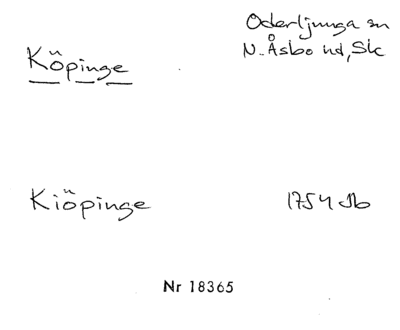 Köpinge
Oderljunga sn
N. Åsbo hd, Sk
Kiöpinge
1754 Jb
Nr 18365